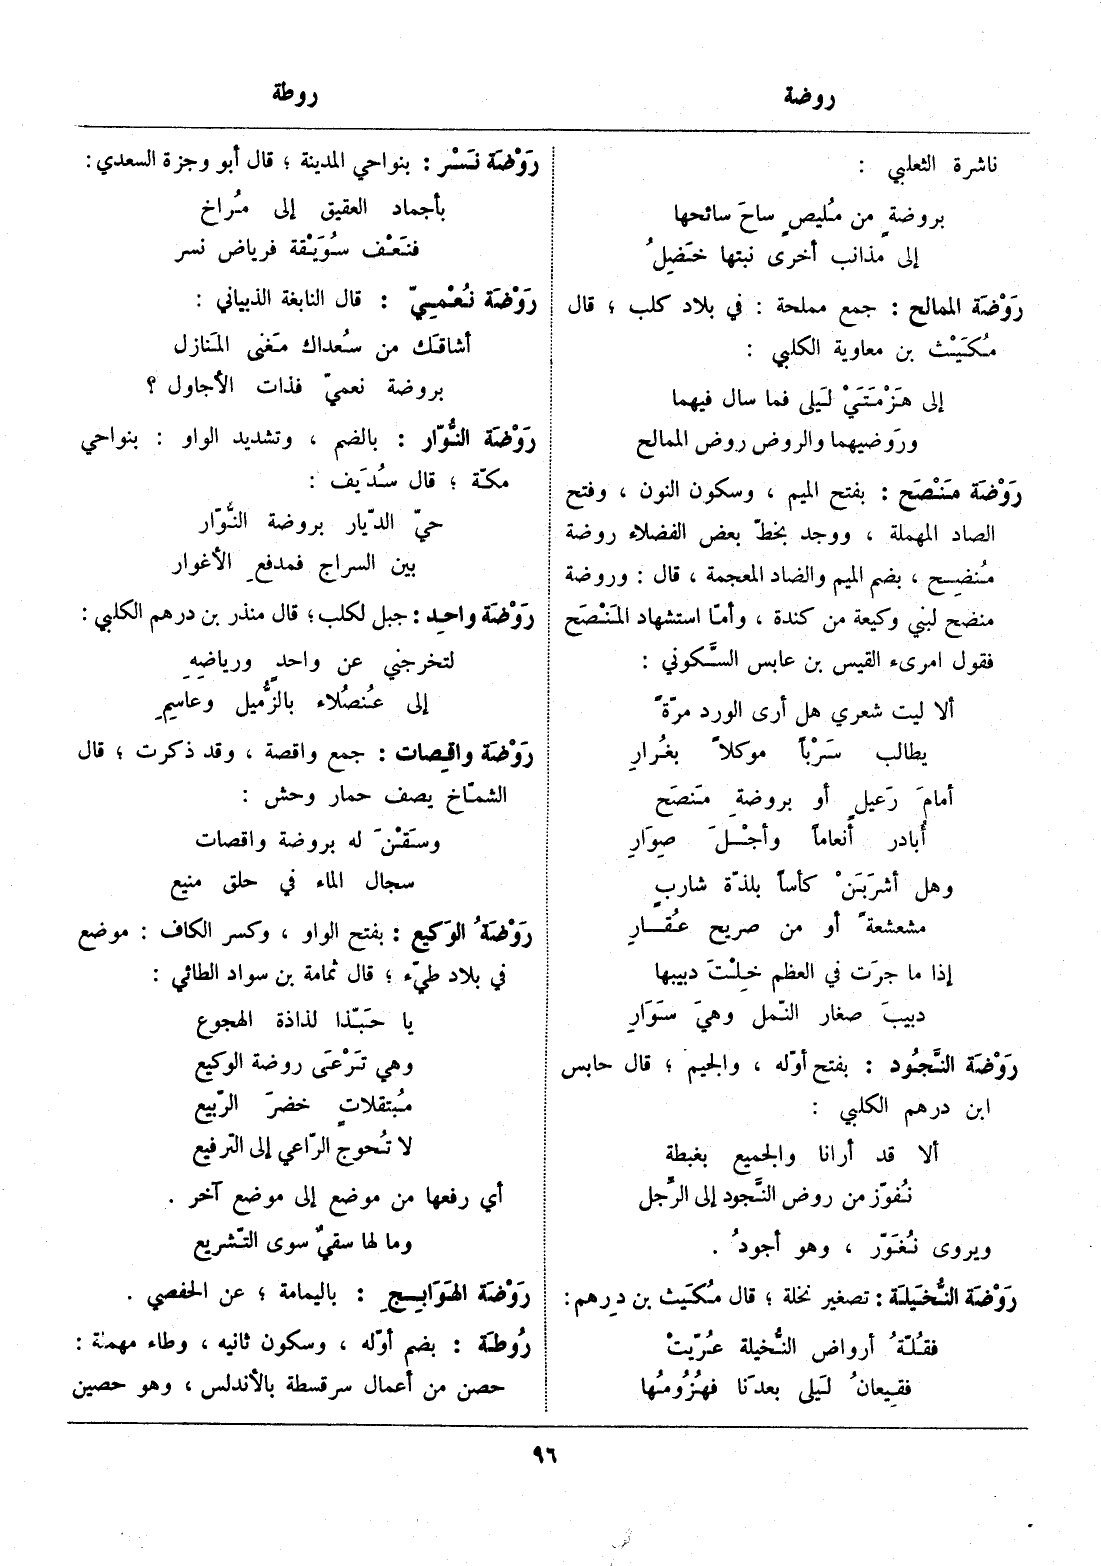 روضة
روطة
ناشرة الثعلبي :
بروضةٍ من مُليصٍ ساحَ سائحها
إلى مذانب أخرى نبتها خَضِلُ
رَوْضَة الممالح : جمع مملحة : في بلاد كلب ؛ قال
مُكَيْث بن معاوية الكلبي :
إلى هَزْمَتَيْ لَيلى فما سال فيهما
ورَوضيهما والروض روض الممالح
رَوْضَة مَنْصَح : بفتح الميم ، وسكون النون ، وفتح
الصاد المهملة ، ووجد بخطّ بعض الفضلاء روضة
مُنضِح ، بضم الميم والضاد المعجمة ، قال : وروضة
منضح لبني وكيعة من كندة ، وأمّا استشهاد المَنْصَح
فقول امرىء القيس بن عابس السَّكوني :
ألا ليت شعري هل أرى الورد مرّةً
يطالب سَرْباً موكلاً بغُرارِ
أمامَ رَعيلٍ أو بروضةِ مَنصَح
أُبادر أنعاماً وأجْلَ صِوَارِ
وهل أشرَبَنْ كأساً بلذّة شاربٍ
مشعشعةً أو من صريح عُقارِ
إذا ما جرَت في العظم خِلْتَ دبيبها
دبيبَ صغار النّمل وهيَ سَوَارِ
رَوْضَة النَّجُود : بفتح أوّله ، والجيم ؛ قال حابس
ابن درهم الكلبي :
ألا قد أرانا والجميع بغبطة
نُفوّز من روض النَّجود إلى الرَّجل
ويروى نُغَوّر ، وهو أجودُ .
رَوْضَة النُّخَيلَة : تصغير نخلة ؛ قال مُكَيث بن درهم :
فقُلّةُ أرواض النُّخيلة عُرّيتْ
فقِيعانُ لَيلى بعدَنا فهُزُومُها
رَوْضَة نَسْر : بنواحي المدينة ؛ قال أبو وجزة السعدي :
بأجماد العقيق إلى مُراخ
فنَعْف سُوَيْقة فرياض نسر
رَوْضَة نُعْمِيّ : قال النابغة الذبياني :
أشاقَك من سُعداك مَغنى المَنازل
بروضة نعميّ فذات الأجاول ؟
رَوْضَة النُّوّار : بالضم ، وتشديد الواو : بنواحي
مكّة ؛ قال سُدَيف :
حيّ الدّيار بروضة النُّوّار
بين السراج فمدفعِ الأغوار
رَوْضَة واحِد : جبل لكلب ؛ قال منذر بن درهم الكلبي :
لتخرجني عن واحدٍ ورياضِهِ
إلى عُنصُلاء بالزُّميل وعاسِمِ
رَوْضَة واقِصات : جمع واقصة ، وقد ذكرت ؛ قال
الشمّاخ يصف حمار وحش :
وسَقْنَ له بروضة واقصات
سجال الماء في حلق منيع
رَوْضَةُ الوَكيع : بفتح الواو ، وكسر الكاف : موضع
في بلاد طيّء ؛ قال ثمامة بن سواد الطائي :
يا حَبّذا لذاذة الهجوع
وهي تَرْعَى روضة الوكيع
مُبتقلاتٍ خضرَ الرّبيع
لا تُحوج الرّاعي إلى التّرفيع
أي رفعها من موضع إلى موضع آخر .
وما لها سقيٌ سوى التّشريع
رَوْضَة الهَوَابِجِ : باليمامة ؛ عن الحفصي .
رُوطَة : بضم أوّله ، وسكون ثانيه ، وطاء مهملة :
حصن من أعمال سرقسطة بالأندلس ، وهو حصين
٩٦